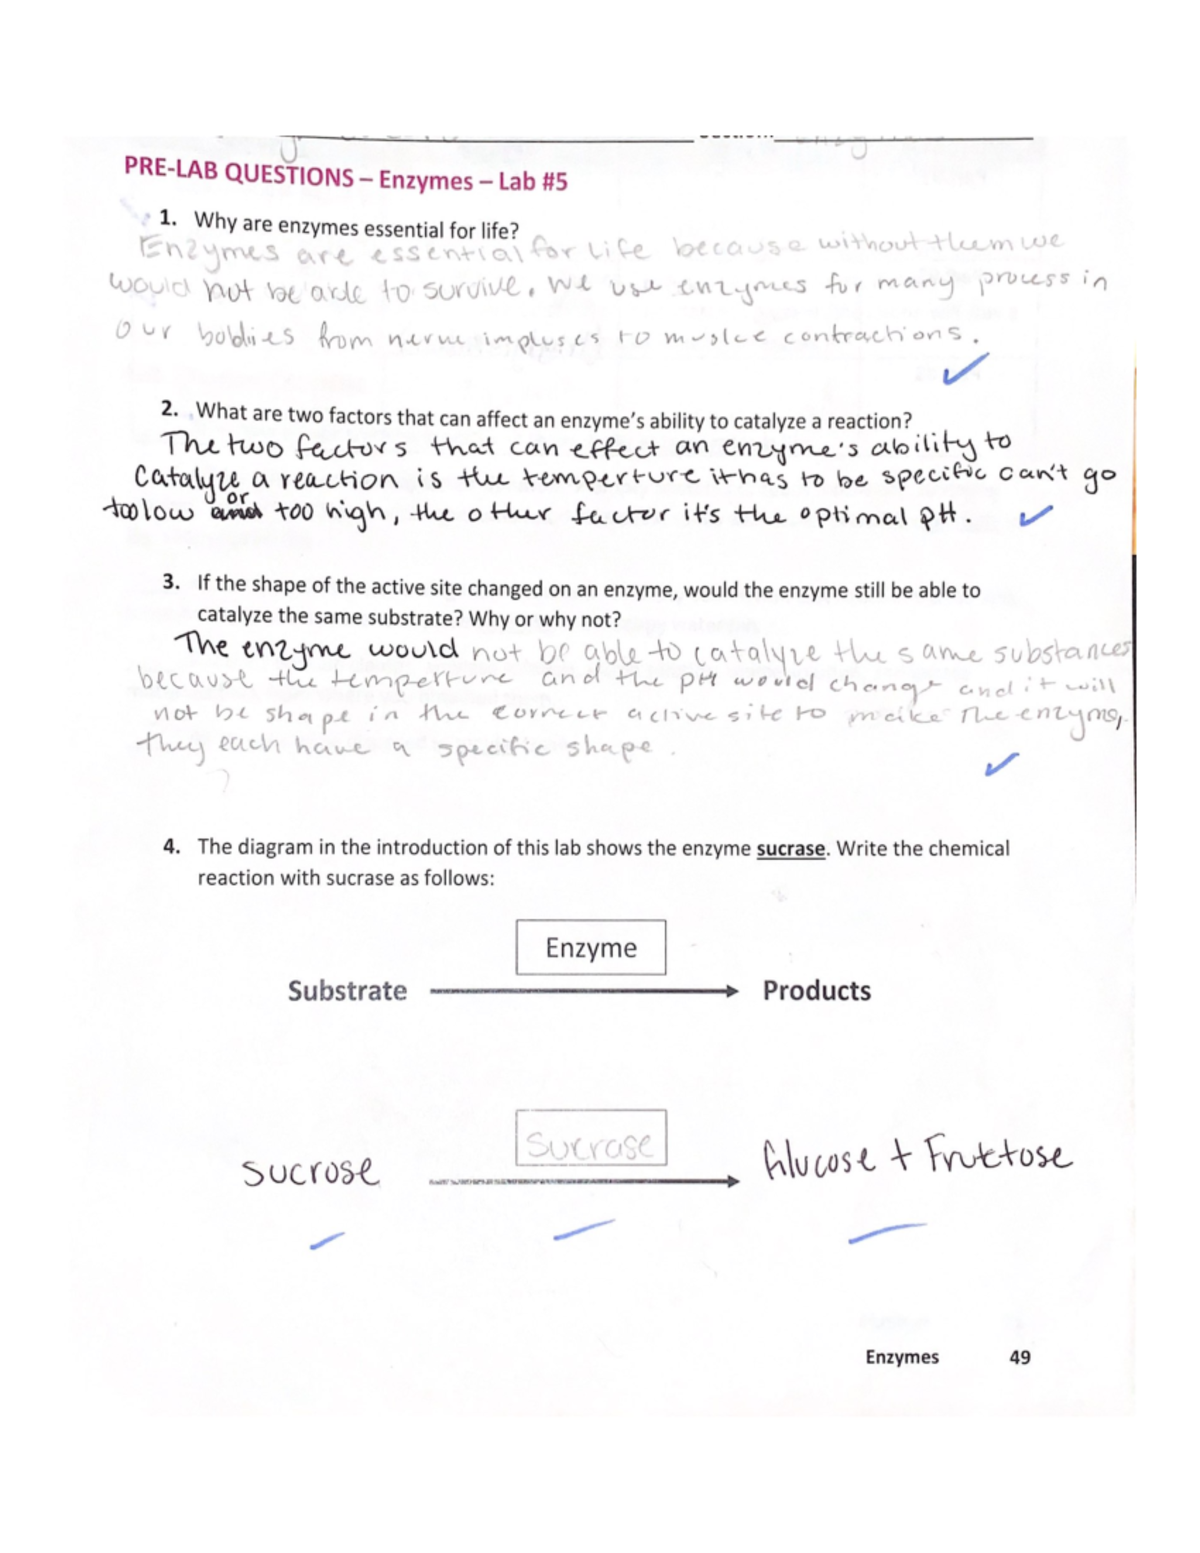 PRE-LAB QUESTIONS – Enzymes – Lab #5
1. Why are enzymes essential for life?
Enzymes are essential for life because without them we
would not be able to survive. We use enzymes for many process in
our boldies from nerve impluses to muslce contractions.
2. What are two factors that can affect an enzyme's ability to catalyze a reaction?
The two factors that can effect an enzyme's ability to
Catalyze a reaction is the temperture it has to be specific can't go
or
too low and too high, the other factor it's the optimal pH.
3. If the shape of the active site changed on an enzyme, would the enzyme still be able to
catalyze the same substrate? Why or why not?
The enzyme would not be able to catalyze the same substances
because the temperture and the pH would change and it will
not be shape in the correct active site to make the enzyme,
they each have a specific shape.
4. The diagram in the introduction of this lab shows the enzyme sucrase. Write the chemical
reaction with sucrase as follows:
Enzyme
Substrate Products
Sucrase
Sucrose Glucose + Fructose
Enzymes 49